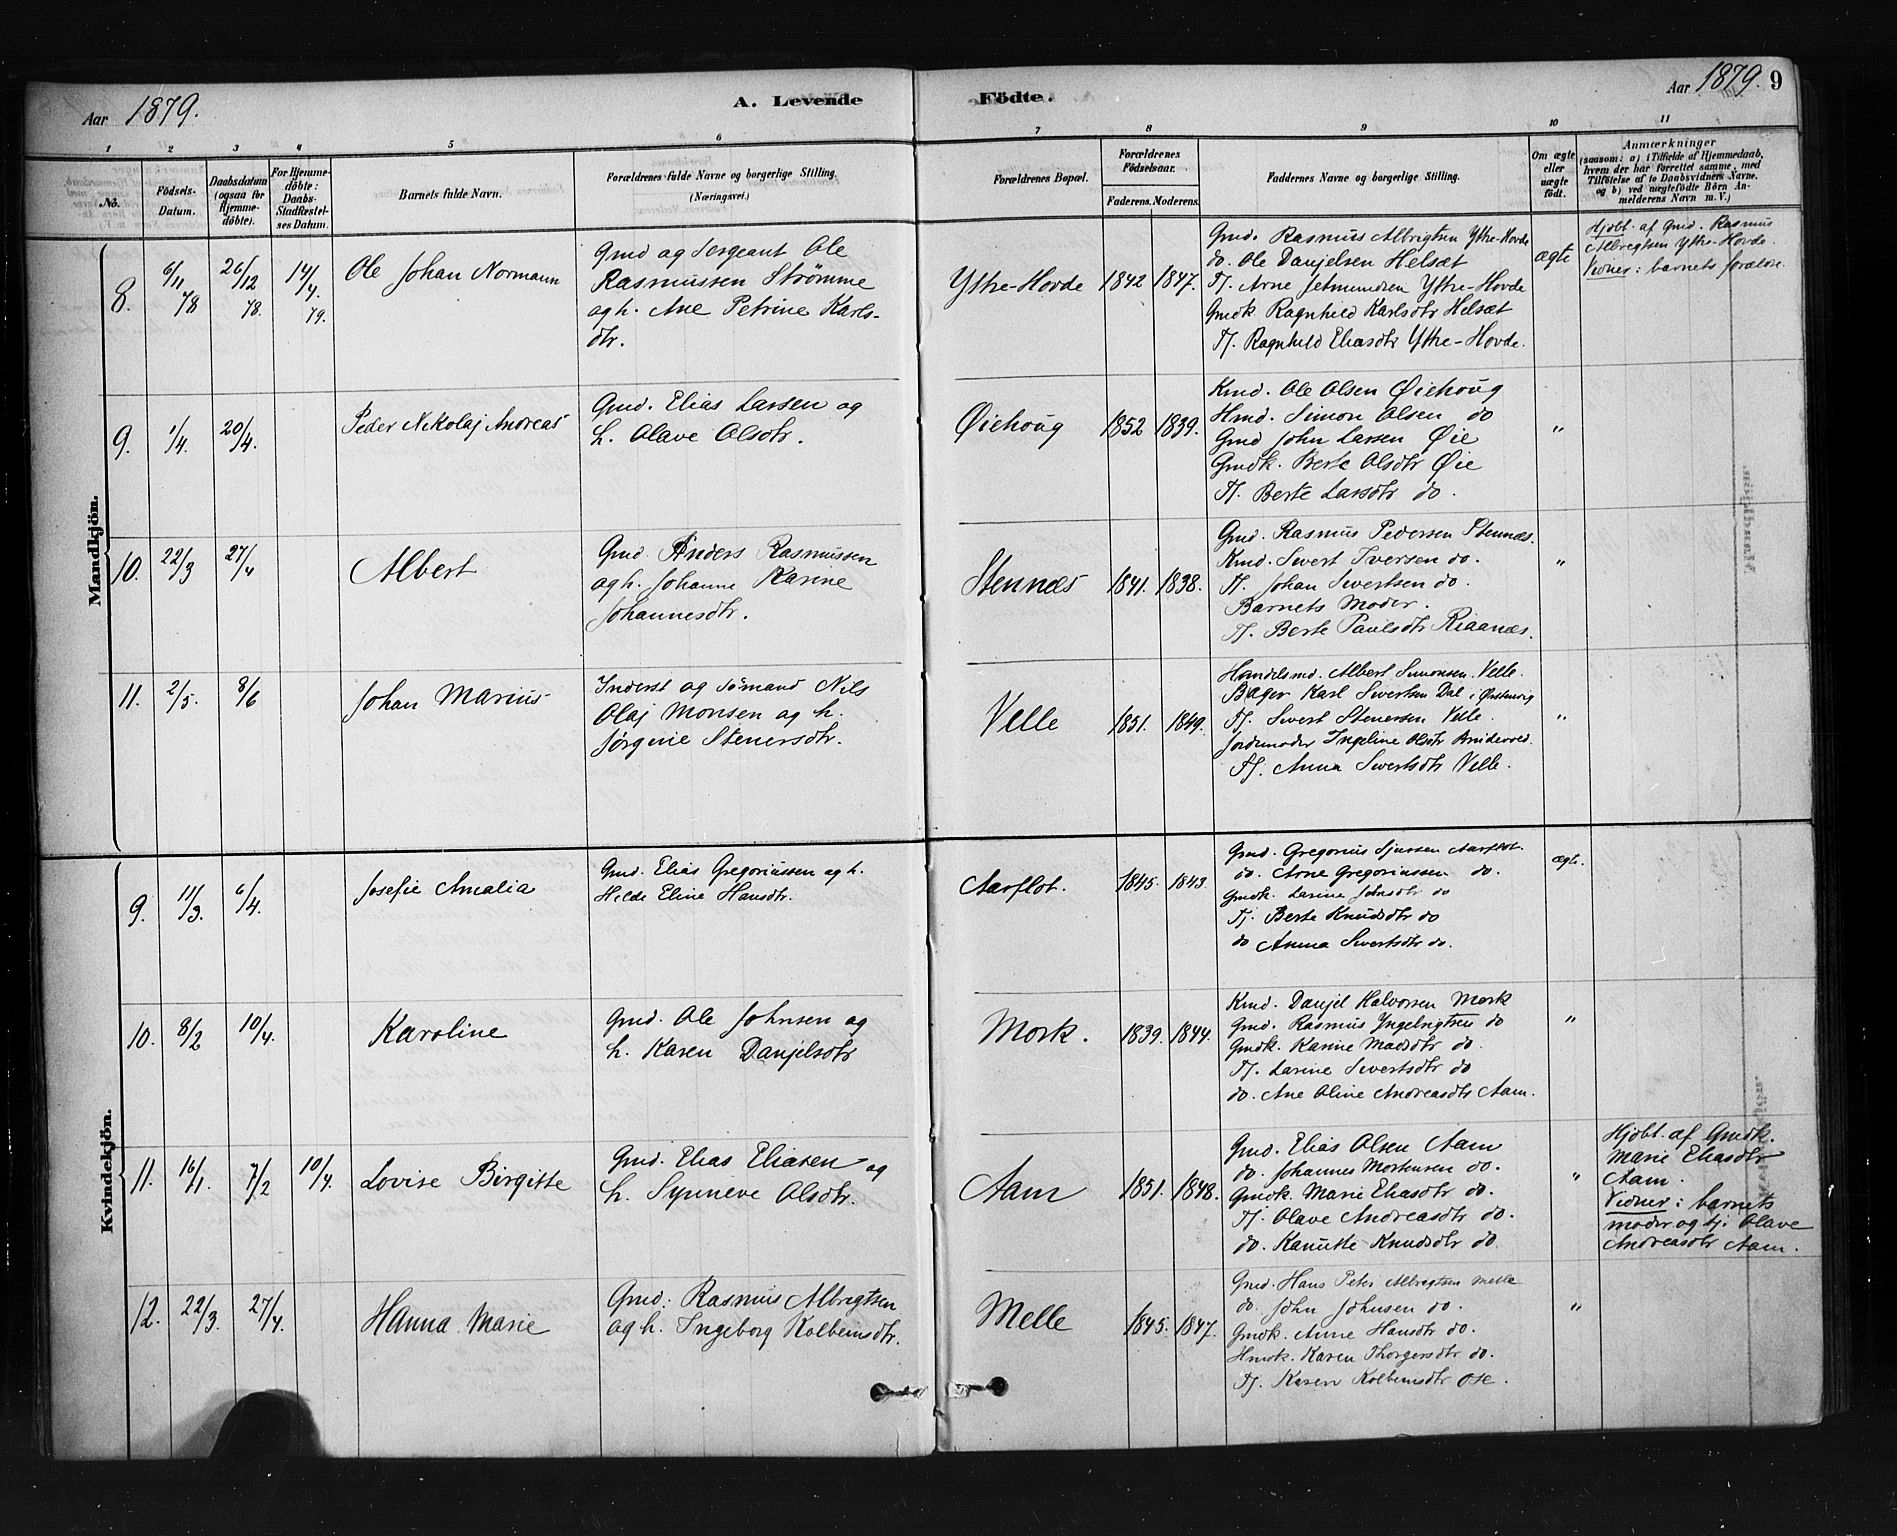 Aar 1879.
A. Levende
Fødte.
Aar 1879. 9
1 2 3 4 5 6 7 8 9 10 11
No.
Fødsels-Datum.
Daabsdatum (ogsaa for Hjemmedøbte).
For Hjemmedøbte: Daabs-Stadfestelses Datum.
Barnets fulde Navn.
Forældrenes fulde Navne og borgerlige Stilling.
(Næringsvei.)
Forældrenes Bopæl.
Forældrenes Fødselsaar.
Faderens. Moderens.
Faddernes Navne og borgerlige Stilling.
Om ægte eller uægte født.
Anmærkninger
(saasom: a) i Tilfælde af Hjemmedaab, hvem der har forrettet samme, med Tilføielse af to Daabsvidners Navne. og b) ved uægtefødte Børn Anmelderens Navn m. V.)
Mandkjön.
8. 6/11 78 26/12 78. 14/4. 79. Ole Johan Normann
Gmd og Sergeant Ole
Rasmussen Strømme
og h. Ane Petrine Karls-
dtr.
Ytre-Hovde 1842 1847.
Gmd. Rasmus Albrigtsen Ytre-Hovde
do. Ole Danjelsen Helsæt
Tj. Arne Jetmundsen Ytre-Hovde
Gmdk. Ragnhild Karlsdtr Helsæt
Tj. Ragnhild Eliasdtr Ytre-Hovde.
ægte
Hjdbt. af Gmd. Rasmus
Albregtsen Ytre-Hovde.
Vidner: barnets forældre.
9. 1/4. 20/4. Peder Nikolaj Andreas
Gmd. Elias Larsen og
h. Olave Olsdtr.
Øiehoug 1852 1839.
Kmd. Ole Olsen Øiehoug
Hmd. Simon Olsen do
Gmd John Larsen Øie
Gmdk. Berte Olsdtr Øie
Tj. Berte Larsdtr do.
"
10. 22/3 27/4 Albert
Gmd. Anders Rasmussen
og h. Johanne Karine
Johannesdtr.
Stennæs 1841. 1838.
Gmd. Rasmus Pedersen Stennæs.
Kmd. Sivert Iversen do.
Tj. Johan Sivertsen do
Barnets Moder.
Tj. Berte Paulsdtr Riaanæs.
"
11. 2/5. 8/6 Johan Marius
Inderst og Sømand Nils
Olaj Monsen og h.
Jørgine Stenersdtr.
Velle 1851. 1849.
Handelsmd. Albert Simonsen Velle
Bager Karl Sivertsen Dal i Ørstenvig
Tj. Sivert Stenersen Velle.
Jordmoder Ingeline Olsdtr
Tj. Anna Sivertsdtr Velle.
"
Kvindekjön.
9. 11/3. 6/4. Josefie Amalia
Gmd. Elias Gregoriussen og h.
Hilde Eline Hansdtr.
Aarflot. 1845. 1843.
Gmd. Gregorius Sjursen Aarflot.
do. Arne Gregoriussen do.
Gmdk. Larine Johnsdtr do
Tj. Berte Knudsdtr do
do Anna Sivertsdtr do.
ægte.
10. 8/2 10/4. Karoline
Gmd. Ole Johnsen og
h. Karen Danjelsdtr
Mork. 1839. 1844.
Kmd. Danjel Halvorsen Mork
Gmd. Rasmus Yngelrigtsen do
Gmdk. Karine Madsdtr do.
Tj. Larine Sivertsdtr do
do. Ane Oline Andreasdtr Aam.
"
11. 16/1. 7/2 10/4. Lovise Birgitte
Gmd. Elias Eliasen og
h. Synneve Olsdtr.
Aam 1851. 1848.
Gmd. Elias Olsen Aam
do. Johannes Mortensen do.
Gmdk. Marie Eliasdtr do.
Tj. Olave Andreasdtr do.
do. Kanutte Knudsdtr do.
"
Hjdbt. af Gmdk.
Marie Eliasdtr
Aam.
Vidner: barnets
moder og tj. Olave
Andreasdtr Aam.
12. 22/3. 27/4. Hanna Marie
Gmd. Rasmus Albrigtsen
og h. Ingeborg Kolbensdtr.
Melle 1845. 1847.
Gmd. Hans Peter Albregtsen Melle
do. John Johnsen do.
Gmdk. Anne Hansdtr do.
Hmdk. Karen Thorgersdtr do.
Tj. Karen Kolbensdtr Ose.
"